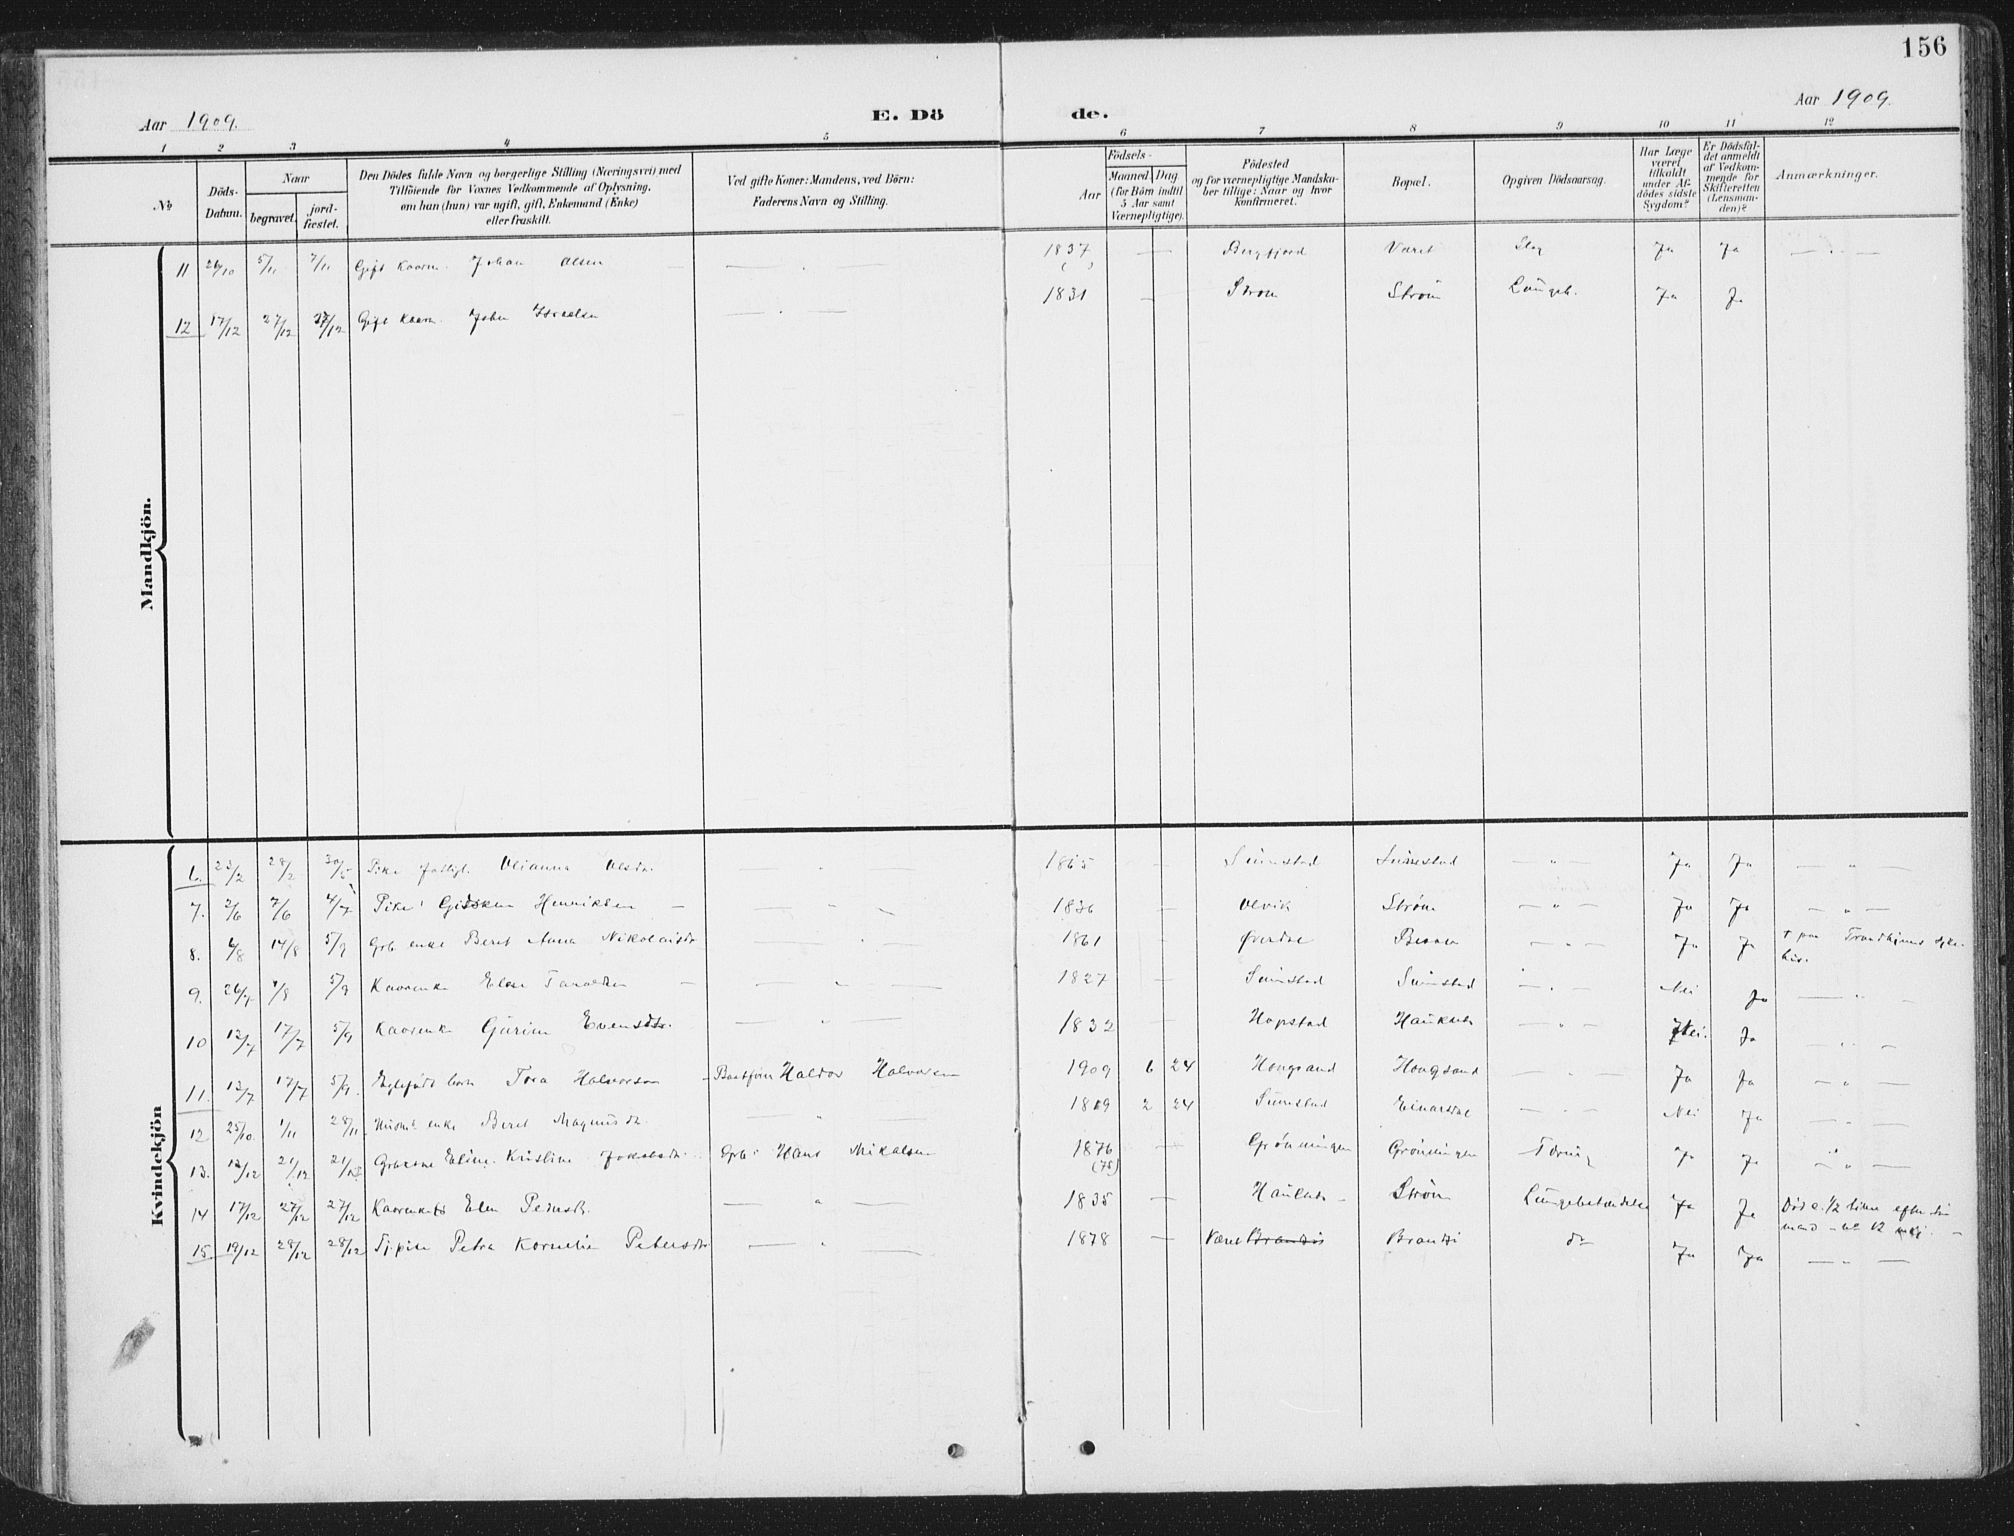 156
Aar 1909.
E. Dö de.
Aar 1909.
1 2 3 4 5 6 7 8 9 10 11 12
№
Döds-Datum.
Naar
begravet.
jord-fæstet.
Den Dödes fulde Navn og borgerlige Stilling (Næringsvei) med
Tilföiende for Voxnes Vedkommende af Oplysning,
om han (hun) var ugift, gift, Enkemand (Enke)
eller fraskilt.
Ved gifte Koner: Mandens, ved Börn:
Faderens Navn og Stilling.
Födsels-
Aar
Maaned Dag
(for Börn indtil
5 Aar samt
Værnepligtige).
Födested
og for værnepligtige Mandska-
ber tillige: Naar og hvor
konfirmeret.
Bopæl.
Opgiven Dödsaarsag.
Har Læge
været
tilkaldt
under Af-
dödes sidste
Sygdom?
Er Dödsfal-
det anmeldt
af Vedkom-
mende for
Skifteretten
(Lensman-
den)?
Anmærkninger.
Mandkjön.
11 26/10 5/11 7/11 Gift Kaarm. Johan Olsen — " — 1837 — Bergfjord Været Slag Ja Ja — " —
12 17/12 27/12 27/12 Gift Kaarm. John Israelsen — " — 1831 — Strøm Strøm Lungeb. Ja Ja
Kvindekjön
6. 23/2 28/2 30/5 Pike Olianna Olsdr. — " — 1865 — Sunnstad Sunnstad — " — Ja Ja — " —
7. 2/6 7/6 4/7 Pike Gidsken Henriksen — " — 1836 — Olvik Strøm — " — Ja Ja — " —
8. 6/8 14/8 5/9 Grb enke Beret Anna Nikolaisdr — " — 1861 — Øverdal Bessen — " — Ja Ja + paa Trondhjems syke-
hus.
9. 26/7 1/8 5/9 Kaarenke Elen Taraldsen — " — 1827 — Sunnstad Sunnstad — " — Nei Ja — " —
10 12/7 17/7 5/9 Kaarenke Gurine Evensdtr. — " — 1832 — Hopstad — " — Nei. Ja — " —
11. 13/7 17/7 5/9. Egtefødt barn Tora Halvorsen Baatfører Haldor Halvorsen 1909 6 24 Hongsand Hongsand — " — Ja Ja — " —
12 25/10. 1/11 28/11. enke Beret Magnusdr. — " — 1819 2 24 Sunnstad Einarsdal — " — Nei Ja — " —
13. 12/12 21/12 21/12 Eline Kristine Jakobsdr. Grb. Hans Mikalsen 1876 (75) — Grønningen Grønningen Tæring Ja Ja — " —
14 17/12 27/12 27/12 Kaarenke Elen Pedersdr. — " — 1835 — Strøm Lungebetændelse Ja Ja Død c. 1/2 time efter sin
mand
15. 19/12 28/12 28/12 Petra Kornelie Petersdtr — " — 1878 — Været Brandsø do Ja Ja — " —